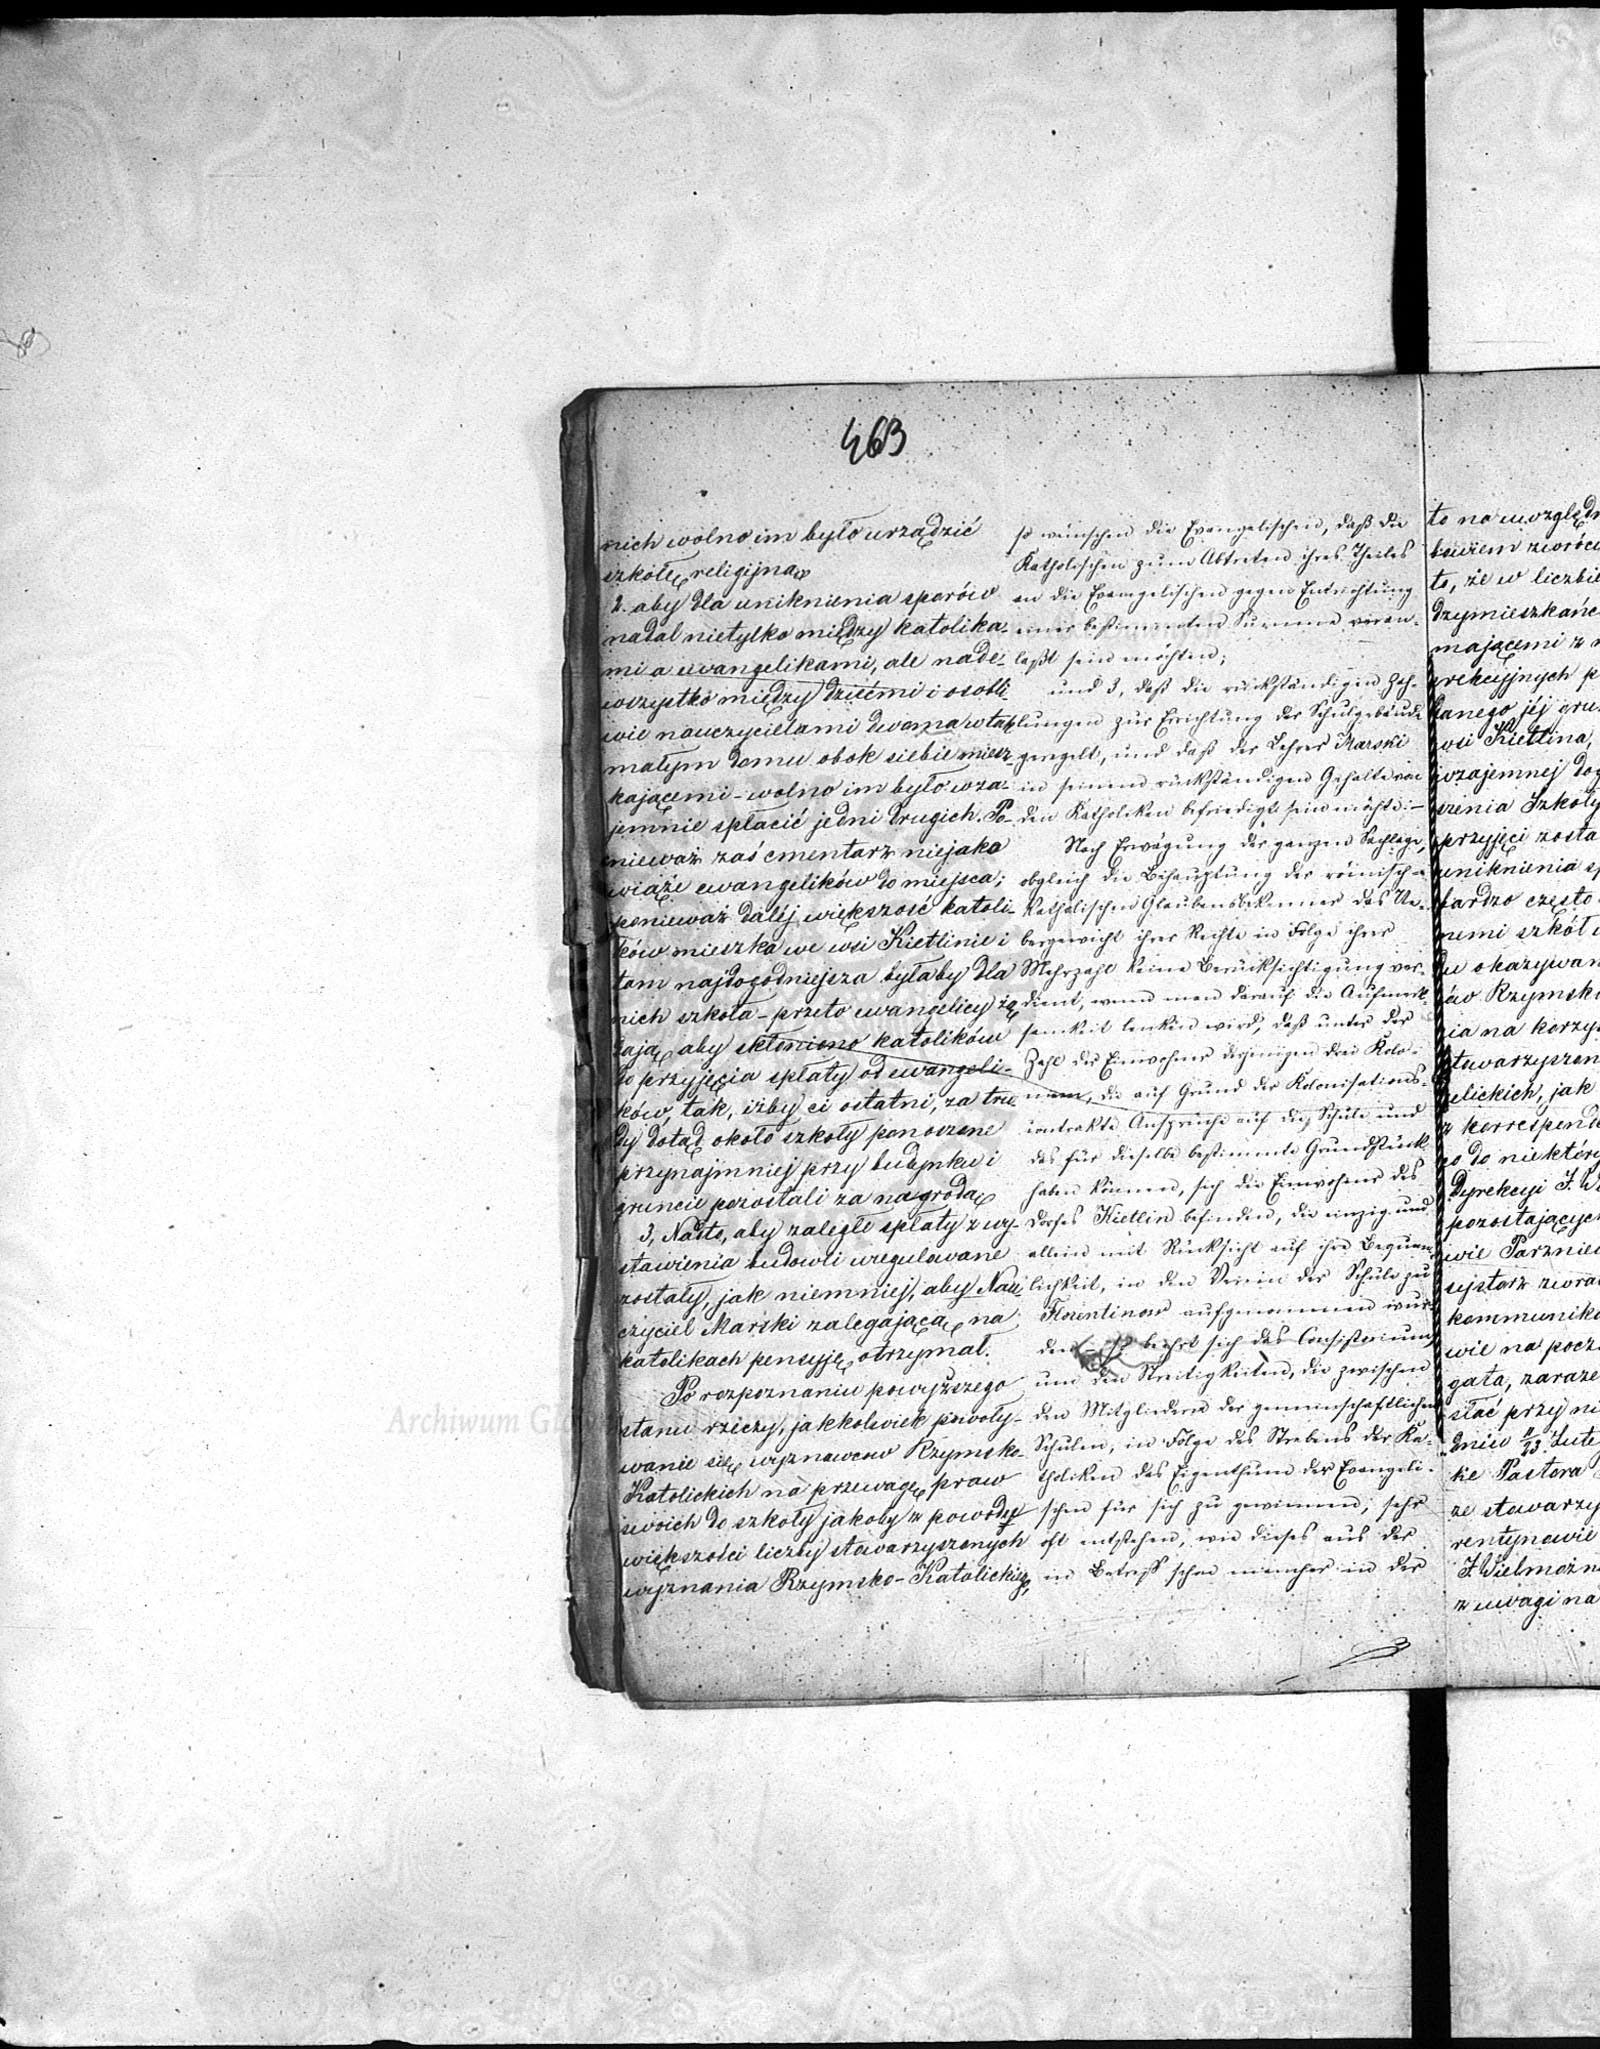 463
nich wolno im było urządzić
szkołę religijną
2. aby dla uniknienia sporów
nadal nietylko między katolika-
mi a ewangelikami, ale nade-
wszystko między dziećmi i osobli
wie nauczycielami dwoma w tak
małym domu obok siebie miesz
kającemi - wolno im było wza-
jemnie spłacić jedni drugich. Po-
nieważ zaś cmentarz niejako
wiąże ewangelików do miejsca;
ponieważ dalej większość katoli-
ków mieszka we wsi Kietlinie i
tam najdogodniejsza byłaby dla
nich szkoła - przeto ewangelicy żą
dają aby skłoniono katolików
do przyjęcia spłaty od ewangeli-
ków, tak, iżby ci ostatni, za tru
dy dotąd około szkoły ponoszone
przynajmniej przy budynku i
gruncie pozostali za nagrodą
3, Nadto, aby zaległe spłaty z wy-
stawienia budowli uregulowane
zostały, jak niemniej, aby Nau
czyciel Marski zalegającą na
katolikach pensyję otrzymał.
Po rozpoznaniu powyższego
stanu rzeczy, jakkolwiek powoły-
wanie się wyznawców Rzymsko-
Katolickich na przewagę praw
swoich do szkoły jakoby z powodu
większości liczby stowarzyszonych
wyznania Rzymsko-Katolickiego,
so wünschen die Evangelischen, daß die
Katholischen zum Abtreten ihres Theiles
an die Evangelischen gegen Entrichtung
einer bestimmten Summe veran-
laßt sein möchten;
und 3, daß die rückständigen Zah-
lungen zur Errichtung der Schulgebäude
geregelt, und daß der Lehrer Marski
in seinem rückständigen Gehalte von
den Katholiken befriedigt sein möchte: -
Nach Erwägung der ganzen Sachlage,
obgleich die Behauptung der römisch-
katholischen Glaubensbekenner das Ue-
bergewicht ihrer Rechte in Folge ihrer
Mehrzahl keine Berücksichtigung ver-
dient, wenn man darauf die Aufmerk-
samkeit lenken wird, daß unter der
Zahl der Einwohner derjenigen drei Kolo-
nien, die auf Grund der Kolonisations-
contrakte Ansprüche auf die Schule und
das für dieselbe bestimmte Grundstück
haben können, sich die Einwohner des
Dorfes Kietlin befinden, die einzig und
allein mit Rücksicht auf ihre Bequem-
lichkeit, in den Verein der Schule zu
Florentinow aufgenommen wur-
den - so beehrt sich das Consistorium,
um den Streitigkeiten, die zwischen
den Mitgliedern der gemeinschaftlichen
Schulen, in Folge des Strebens der Ka-
tholiken das Eigenthum der Evangeli-
schen für sich zu gewinnen, sehr
oft entstehen, wie dieses aus der
in Betreff schon mancher in der
to na uwzględn
bowiem zwróci
to, że w liczbie
dzymieszkańc
mającemi z
erekcyjnych p
kanego jej gru
wsi Kietlina,
wzajemnej dog
szenia Szkoły
przyjęci zosta
uniknienia sp
bardzo często
nemi szkół
du okazywan
ków Rzymsko
nia na korzyś
stowarzyszen
gelickich, jak
z korrespond
co do niektóry
Dyrekcyi J. W
pozostających
wie Parznie
systorz zwra
kommunik
wie na pocz
gata, zaraze
słać przy ni
dniu 11/23 Lute
kie Pastora
ze stowarzy
rentynowie
J. Wielmożn
z uwagi na
Archiwum Główne